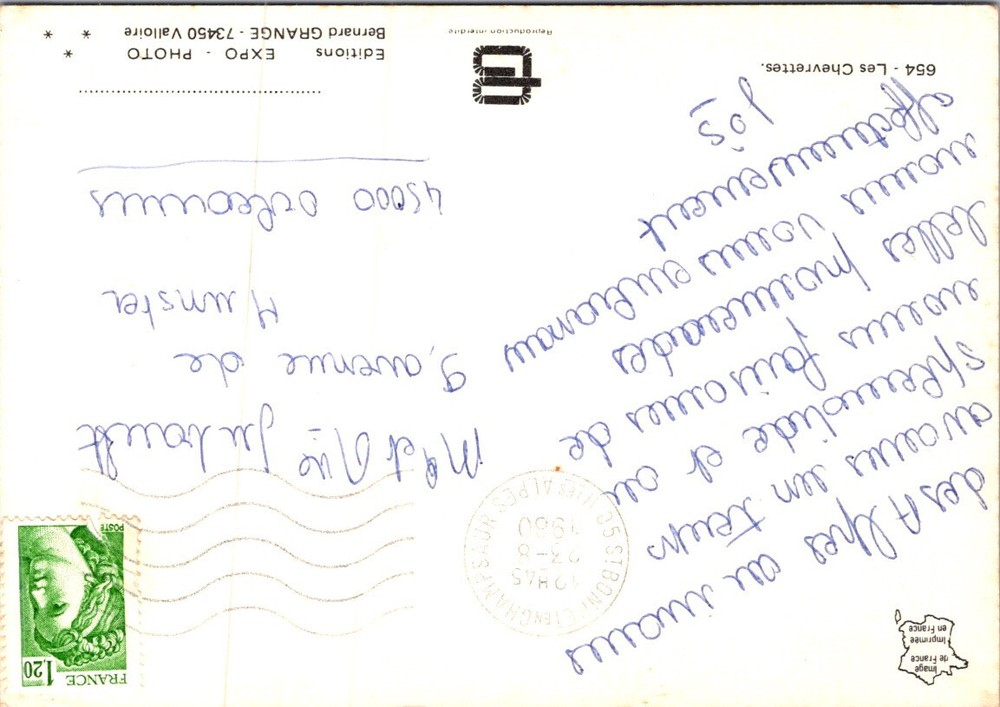 des Alpes ou nous
avons un temps
splendide et où
nous faisons de
belles promenades
nous vous embrassons
affectueusement
Jos
M et Mme
9, avenue de
Munster
45000 Orléans
FRANCE
1,20
POSTE
05 ST BONNET EN CHAMPSAUR HTES ALPES
12H45
23-8
1980
Image
de France
Imprimée
en France
654 - Les Chevrettes.
Reproduction interdite
Editions EXPO - PHOTO *
Bernard GRANGE - 73450 Valloire * *